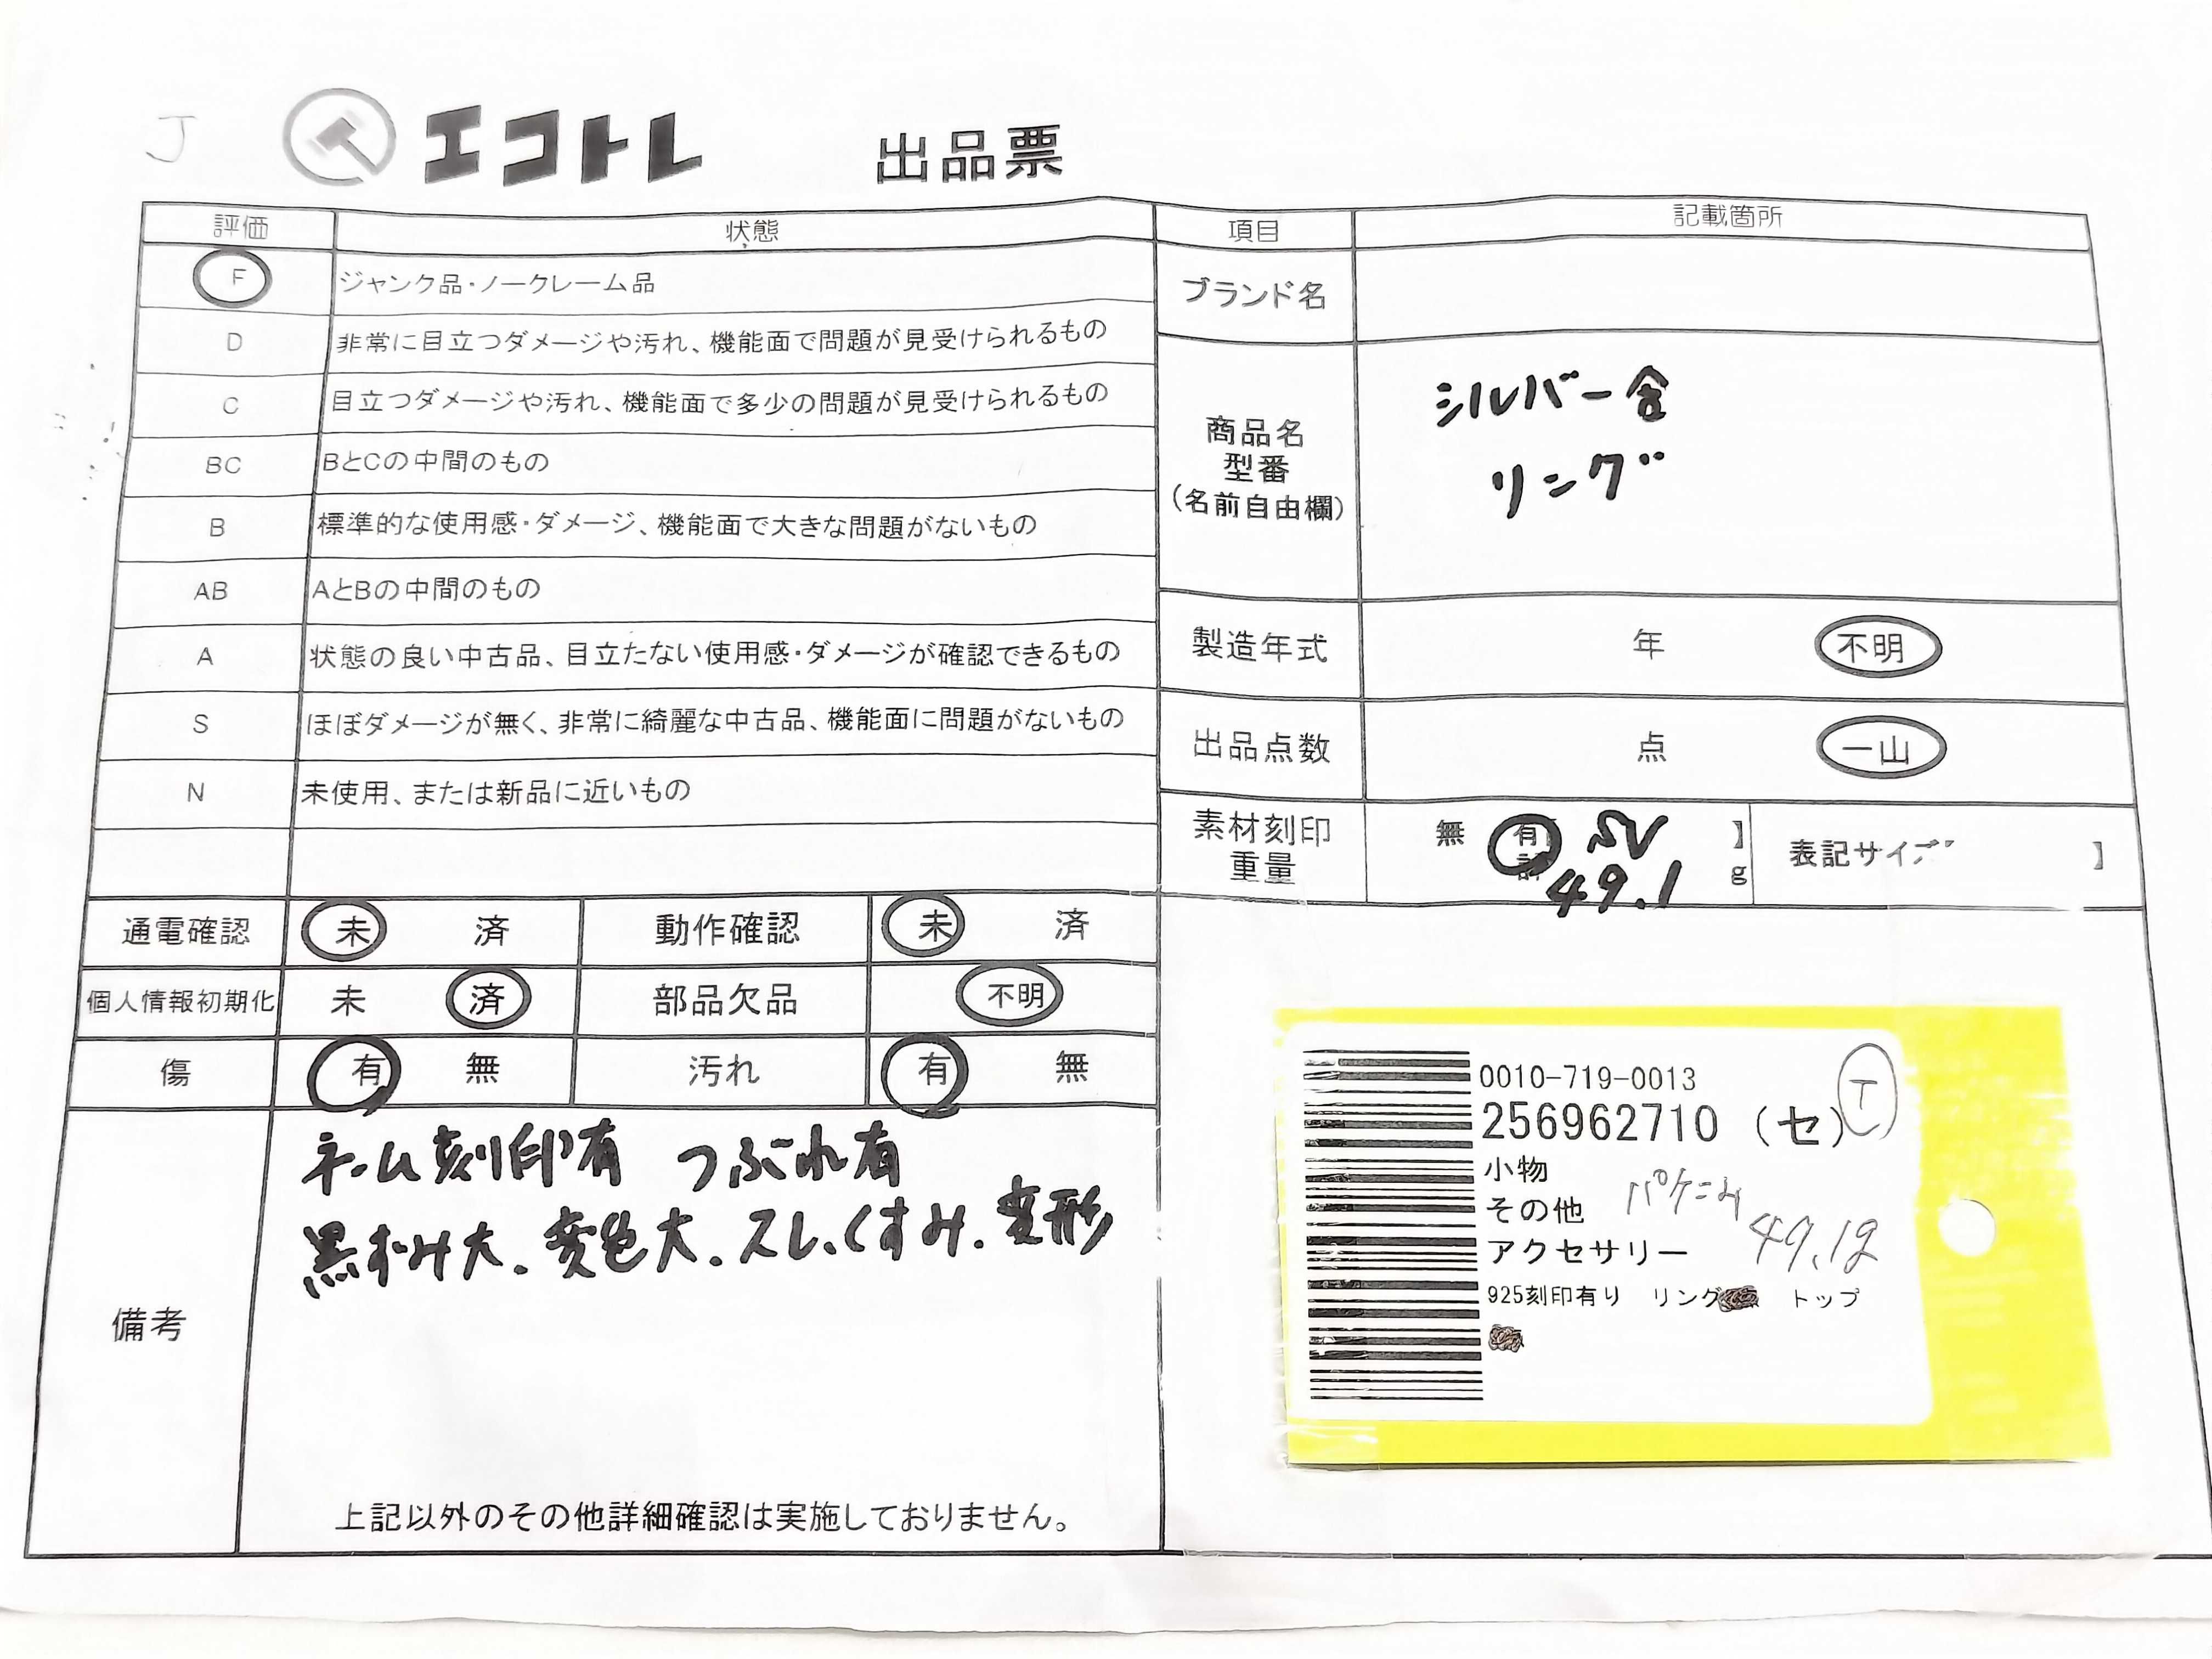 J
エコトレ 出品票
評価 状態
F ジャンク品・ノークレーム品
D 非常に目立つダメージや汚れ、機能面で問題が見受けられるもの
C 目立つダメージや汚れ、機能面で多少の問題が見受けられるもの
BC BとCの中間のもの
B 標準的な使用感・ダメージ、機能面で大きな問題がないもの
AB AとBの中間のもの
A 状態の良い中古品、目立たない使用感・ダメージが確認できるもの
S ほぼダメージが無く、非常に綺麗な中古品、機能面に問題がないもの
N 未使用、または新品に近いもの
通電確認 未 済 動作確認 未 済
個人情報初期化 未 済 部品欠品 不明
傷 有 無 汚れ 有 無
備考
ネーム刻印有 つぶれ有
黒ずみ大.変色大.スレ.くすみ.変形
上記以外のその他詳細確認は実施しておりません。
項目 記載箇所
ブランド名
商品名
型番
(名前自由欄)
シルバー含
リング
製造年式 年 不明
出品点数 点 一山
素材刻印
重量
無 有 SV 】
49.1 g
表記サイズ 】
0010-719-0013
256962710 (セ)
T
小物
その他
アクセサリー
49.1g
925刻印有り リング トップ